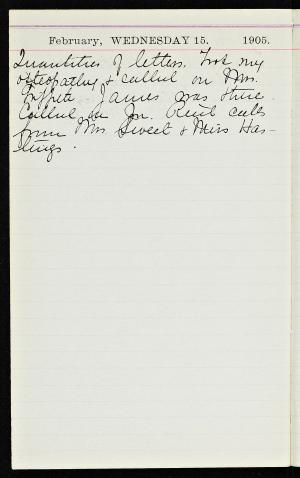 February, WEDNESDAY 15. 1905.
Quantities of letters. Took my
osteopathy & called on Mrs.
James was there.
Called on Jn. calls
from Mrs Sweet & Miss Has-
tings.